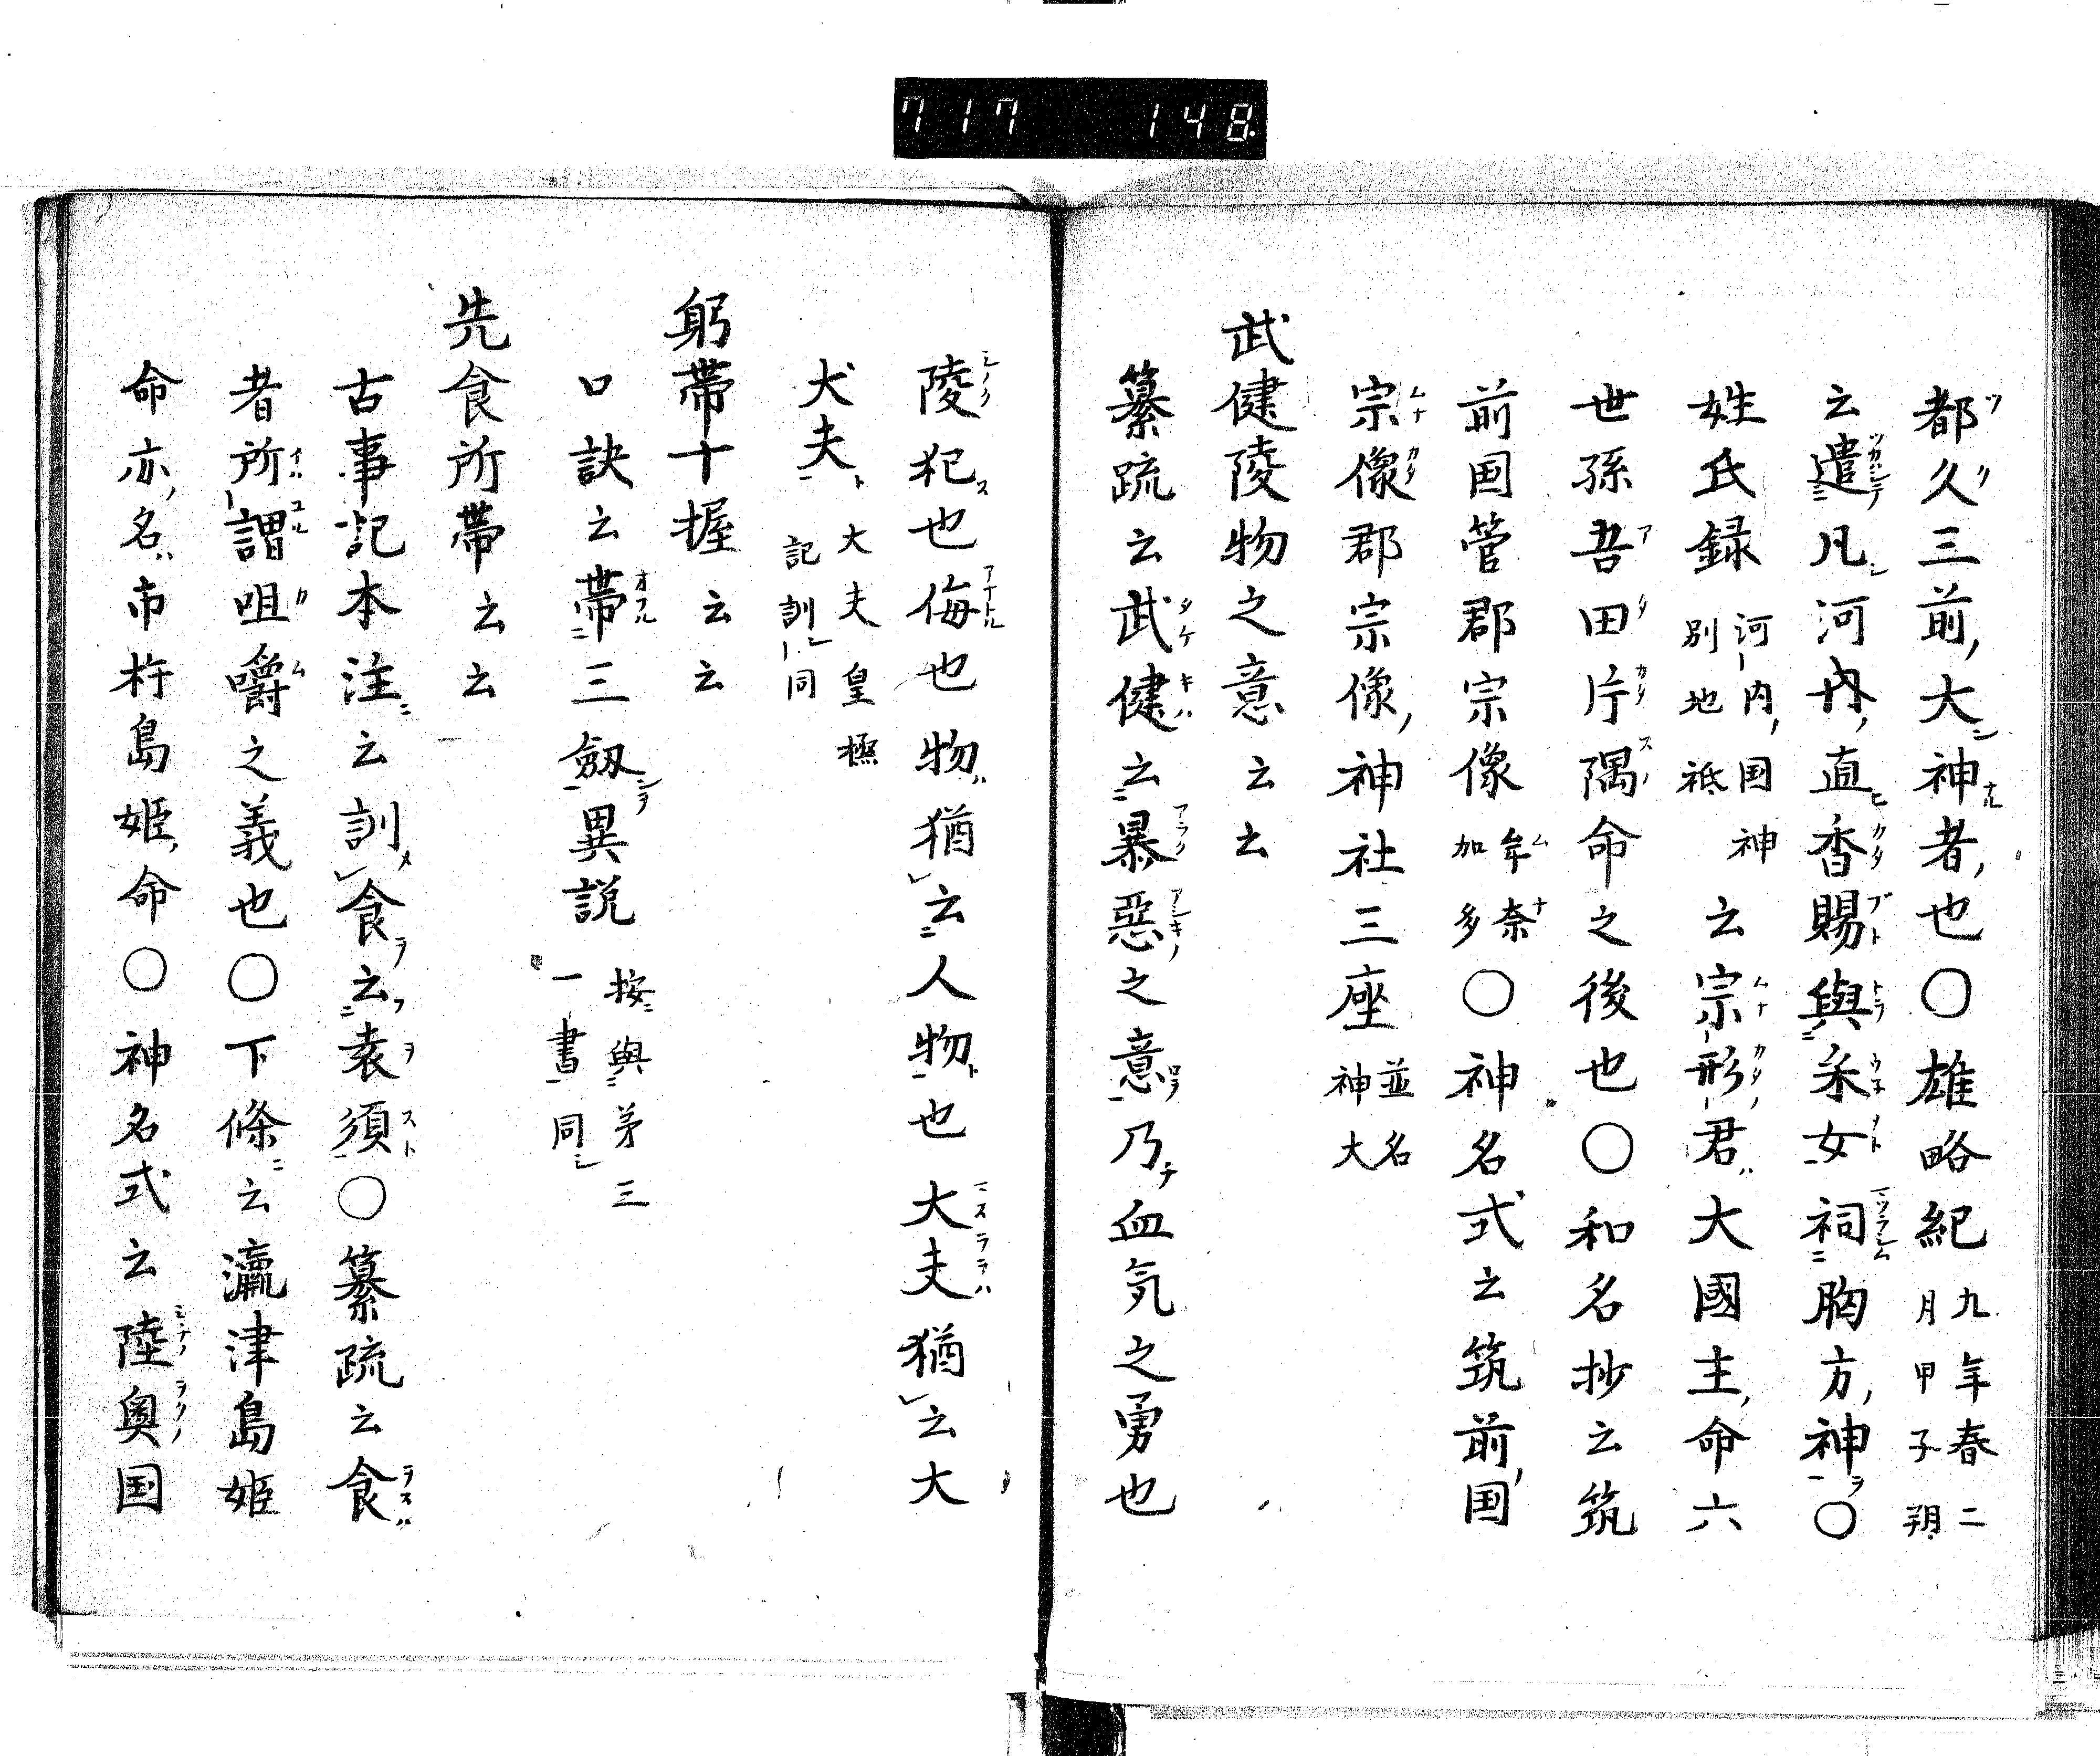 717 148
都久三前大神者也〇雄略紀九年春二月甲子朔
云遣凡河内直香賜與采女祠胸方神〇
姓氏録河内国神別地祇云宗形君大國主命六
世孫吾田片隅命之後也〇和名抄云筑
前国管郡宗像牟奈加多〇神名式云筑前国
宗像郡宗像神社三座並名神大
武健陵物之意云云
纂疏云武健云暴惡之意乃血気之勇也
陵犯也侮也物猶云人物也大夫猶云大
丈夫大夫皇極記訓同
躬帯十握云云
口訣云帯三劔異説按與第三一書同
先食所帯云云
古事記本注云訓食云袁須〇纂疏云食
者所謂咀嚼之義也〇下條云瀛津島姫
命亦名市杵島姫命〇神名式云陸奥国